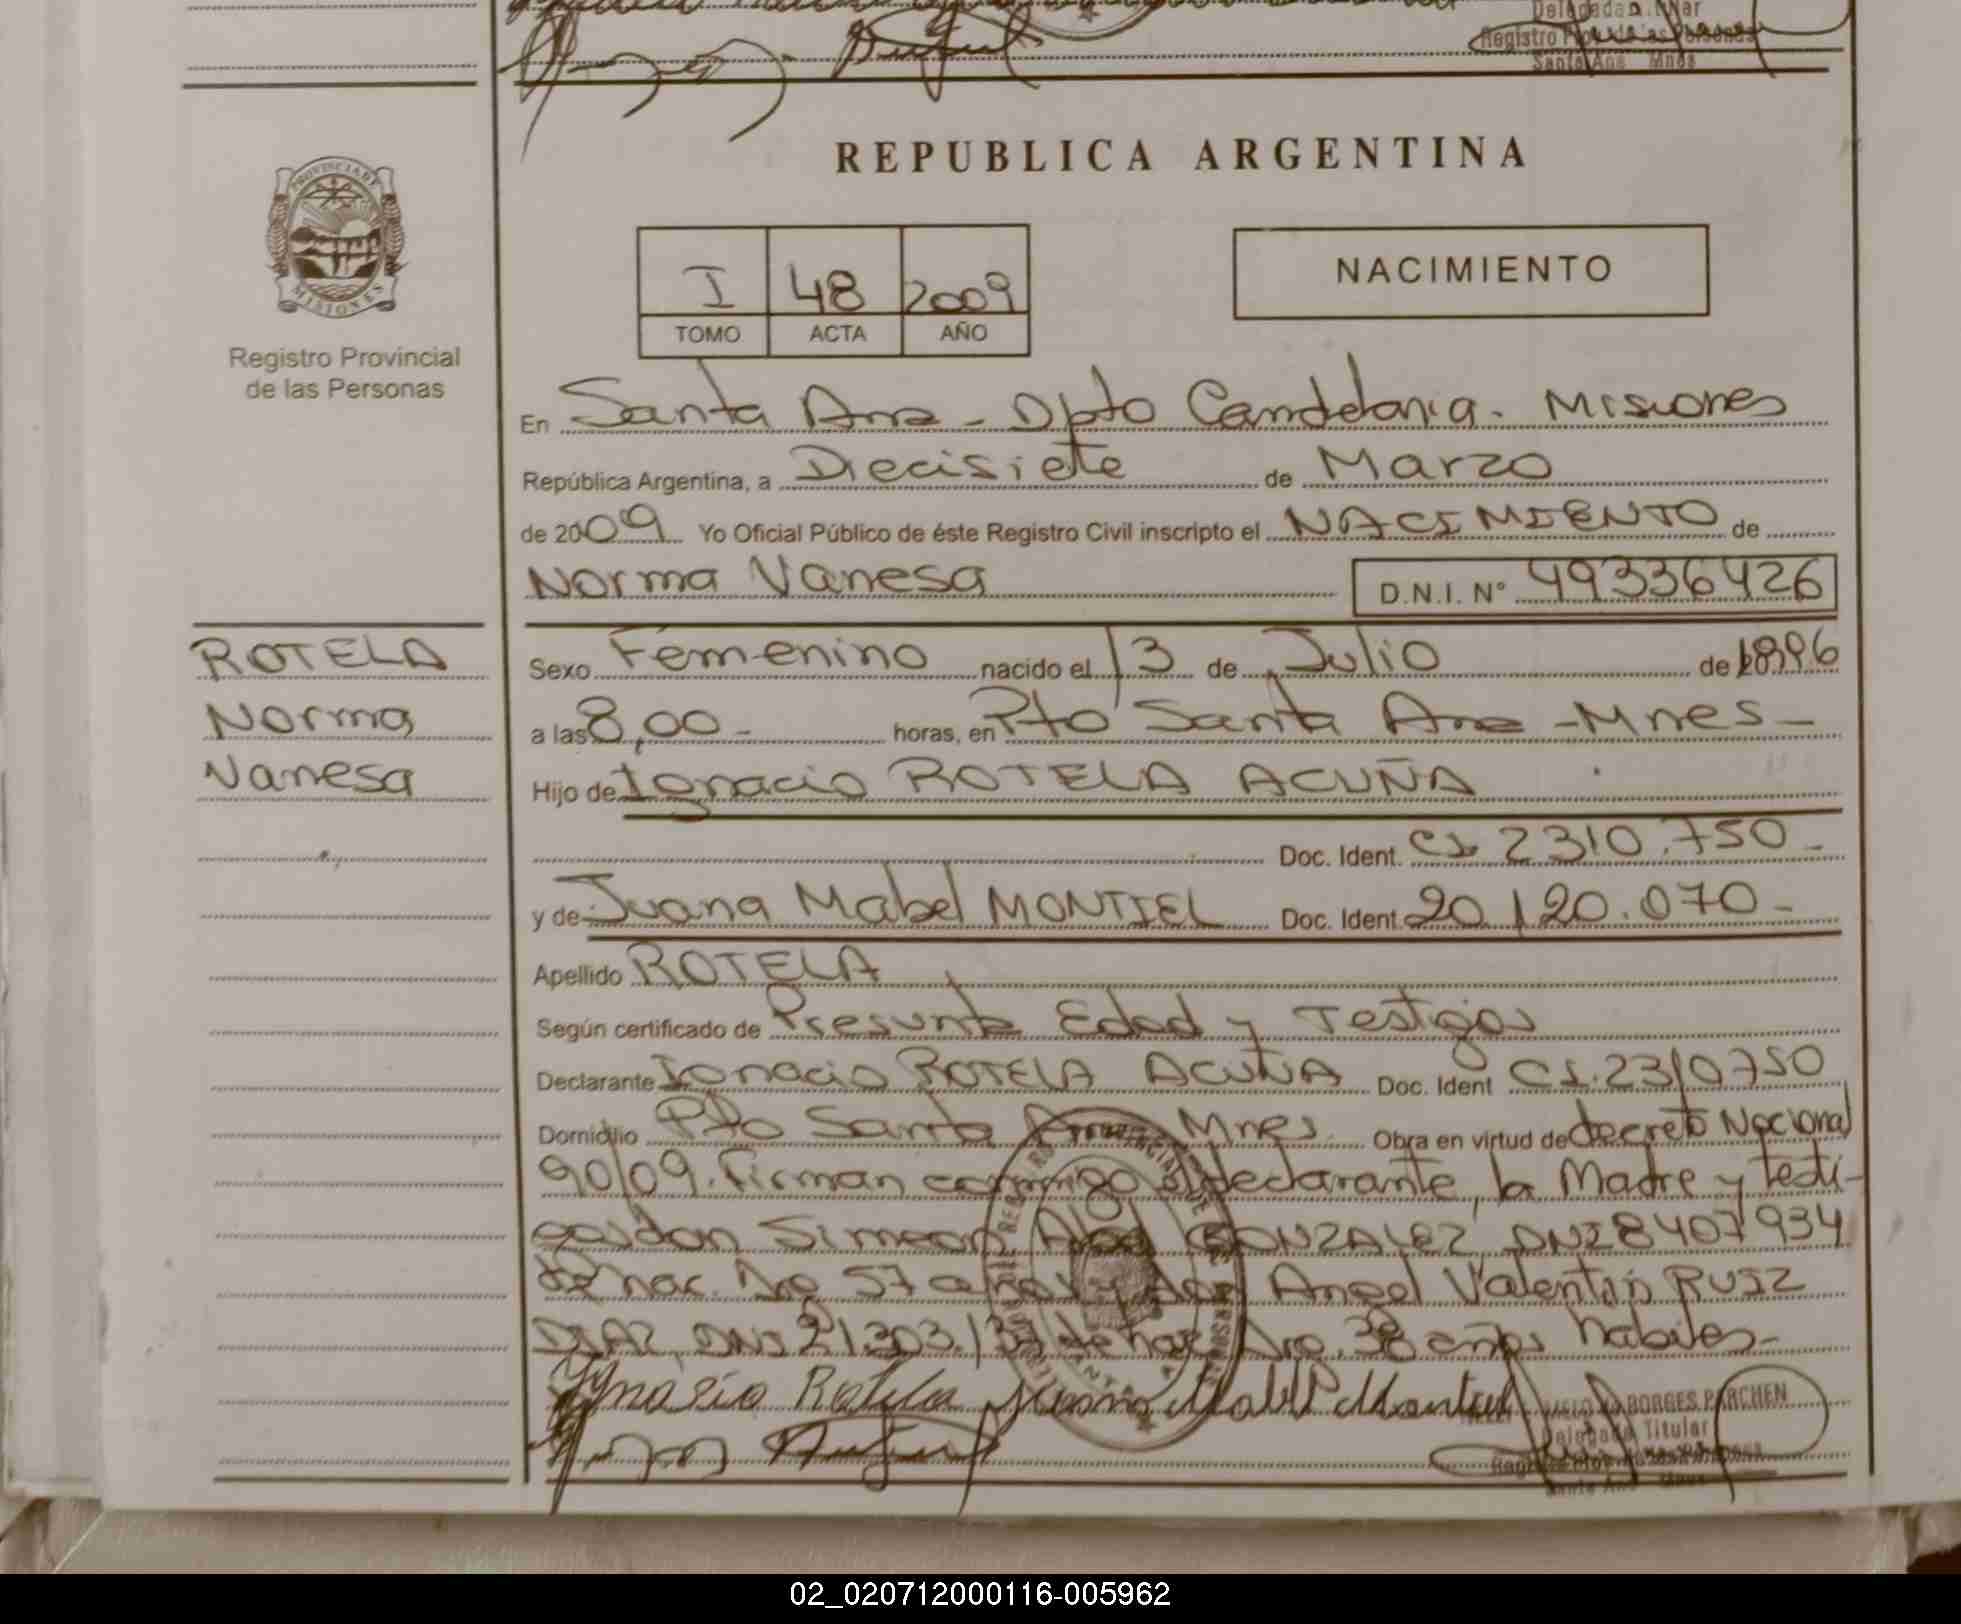 Delegada Titular
Registro Prov. de las Personas
Santa Ana Mnes
REPUBLICA ARGENTINA
PROVINCIA DE
MISIONES
Registro Provincial
de las Personas
I 48 2009
TOMO ACTA AÑO
NACIMIENTO
En Santa Ana - Dpto Candelaria - Misiones
República Argentina, a Diecisiete de Marzo
de 2009 Yo Oficial Público de éste Registro Civil inscripto el NACIMIENTO de
Norma Vanesa D.N.I. N° 49336426
ROTELA
Norma
Vanesa
Sexo Femenino nacido el 13 de Julio de 1996
a las 8,00 - horas, en Pto Santa Ana - Mnes -
Hijo de Ignacio ROTELA ACUÑA
Doc. Ident. CI. 2310.750 -
y de Juana Mabel MONTIEL Doc. Ident 20.120.070 -
Apellido ROTELA
Según certificado de Presunta Edad y Testigos
Declarante Ignacio ROTELA ACUÑA Doc. Ident CI. 2310750
Domicilio Pto Santa Ana Mnes. Obra en virtud de decreto Nacional
90/09. Firman conmigo el declarante, la Madre y testi-
gos don Simeon GONZALEZ, DNI 8407934
de nac. Arg. 57 años y don Angel Valentin RUIZ
DIAZ, DNI 21.303.137 de nac Arg. 38 años habiles -
Ygnasio Rotela Juana Mabel Montiel
BORGES PERCHEN
Delegada Titular
Santa Ana Mnes
02_020712000116-005962